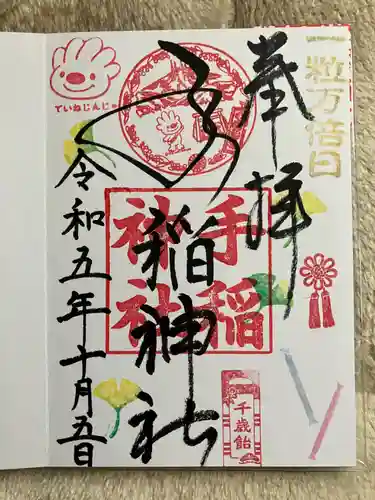 一粒万倍日
奉拝
手稲神社
手稲神社
千歳飴
ていねじんじゃ
令和五年十月五日